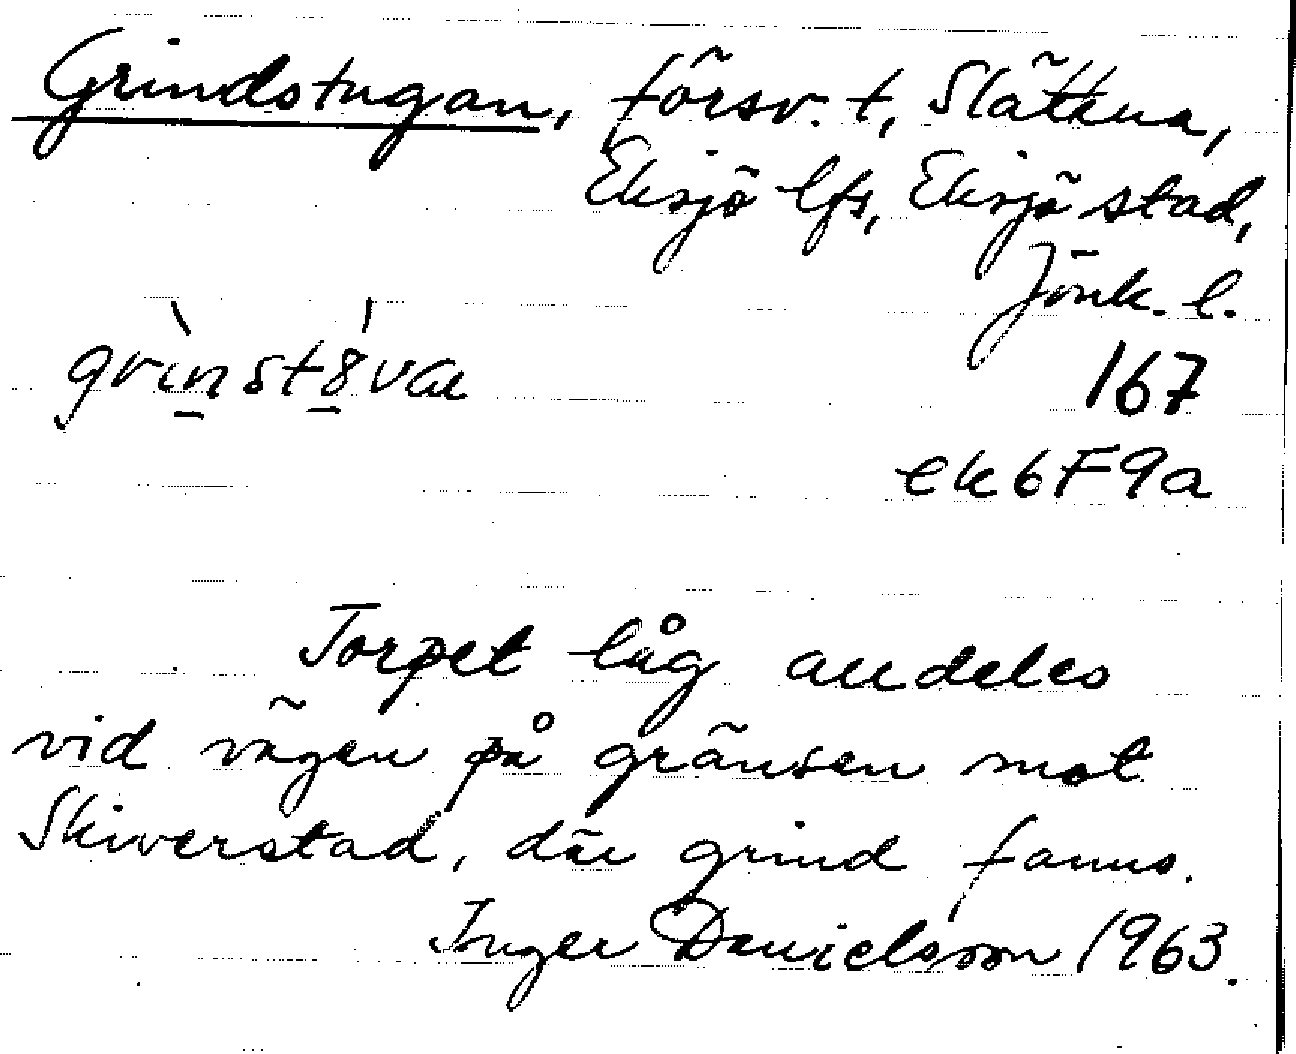 Grindstugan, försv. t, Slättna,
Eksjö lfs, Eksjö stad,
Jönk. l.
grìnst8́va
167
ek6F9a
Torpet låg alldeles
vid vägen på gränsen mot
Skiverstad, där grind fanns.
Inger Danielsson 1963.